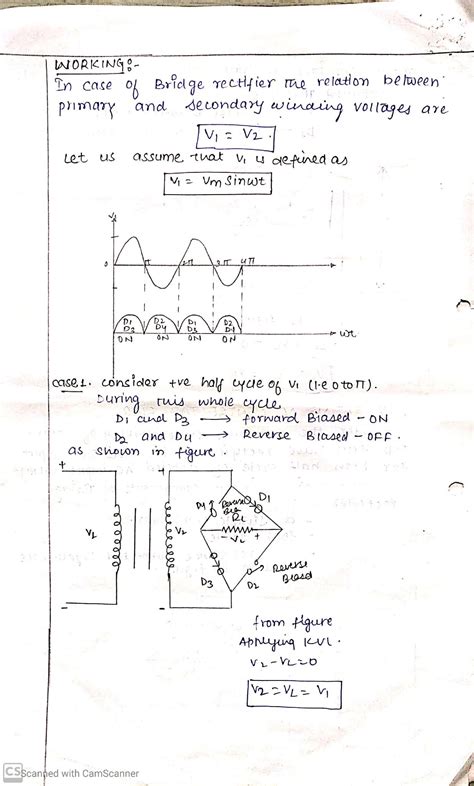 WORKING:-
In case of Bridge rectifier the relation between
primary and secondary winding voltages are
V1 = V2.
Let us assume that V1 is defined as
V1 = Vm Sinwt
V1
0 π 2π 3π 4π
D1 D2 D1 D2
D3 D4 D3 D4
ON ON ON ON
wt
case1. consider +ve half cycle of V1 (i.e 0 to π).
During this whole cycle
D1 and D3 → forward Biased - ON
D2 and D4 → Reverse Biased - OFF.
as shown in figure.
+ +
D4 Reverse D1
RL
V2
- VL +
Reverse
Biased
D3 D2
- -
from figure
Applying KVL.
V2-VL=0
V2 = VL = V1
CS Scanned with CamScanner